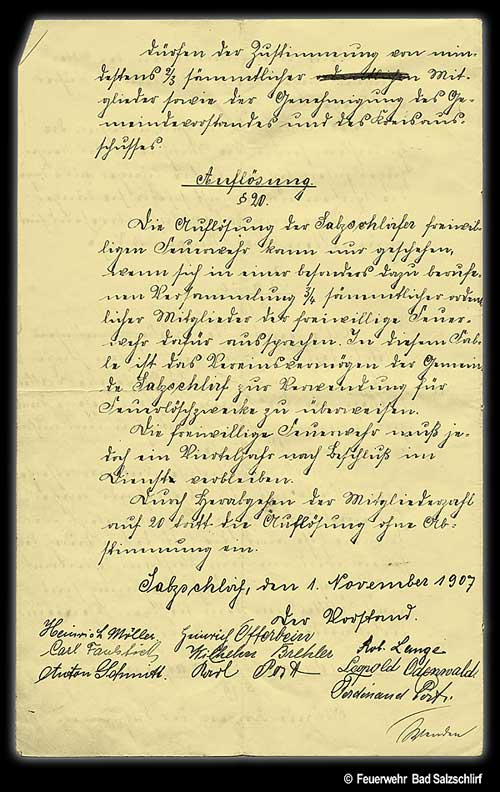 dürfen der Zustimmung von min-
destens 2/3 sämmtlicher Mit-
glieder sowie der Genehmigung des Ge-
meindevorstandes und des Kreisaus-
schusses.
Auflösung.
§ 20.
Die Auflösung der Salzschlirfer freiwil-
ligen Feuerwehr kann nur geschehen,
wenn sich in einer besonders dazu berufe-
nen Versammlung 3/4 sämmtlicher ordent
licher Mitglieder der freiwillige Feuer-
wehr dafür aussprechen. In diesem Fal-
le ist das Vereinsvermögen der Gemein
de Salzschlirf zur Verwendung für
Feuerlöschzwecke zu überweisen.
Die freiwillige Feuerwehr muß je-
doch ein Vierteljahr nach Beschluß im
Dienste verbleiben.
Durch Herabgehen der Mitgliederzahl
auf 20 tritt die Auflösung ohne Ab-
stimmung ein.
Salzschlirf, den 1. November 1907
Der Vorstand.
Heinrich Möller Heinrich Otterbein Rob. Lange
Carl Wilhelm Brehler Leopold Odenwald
Anton Schmitt. Karl Post Ferdinand Post.
Wenden
© Feuerwehr Bad Salzschlirf